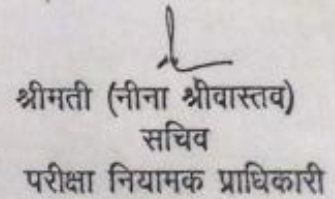 श्रीमती (नीना श्रीवास्तव)
सचिव
परीक्षा नियामक प्राधिकारी